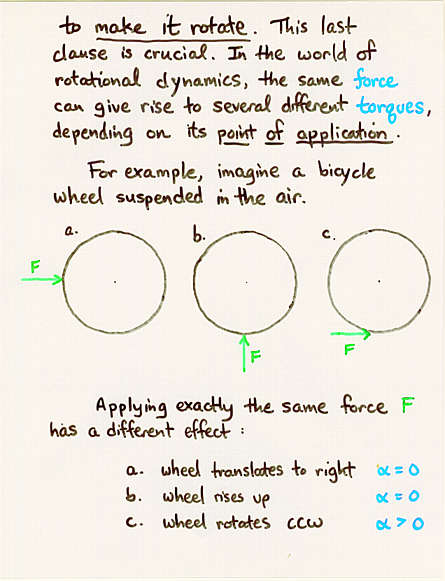 to make it rotate. This last
clause is crucial. In the world of
rotational dynamics, the same force
can give rise to several different torques,
depending on its point of application.
For example, imagine a bicycle
wheel suspended in the air.
a. b. c.
F
F
F
Applying exactly the same force F
has a different effect :
a. wheel translates to right α = 0
b. wheel rises up α = 0
c. wheel rotates ccw α > 0